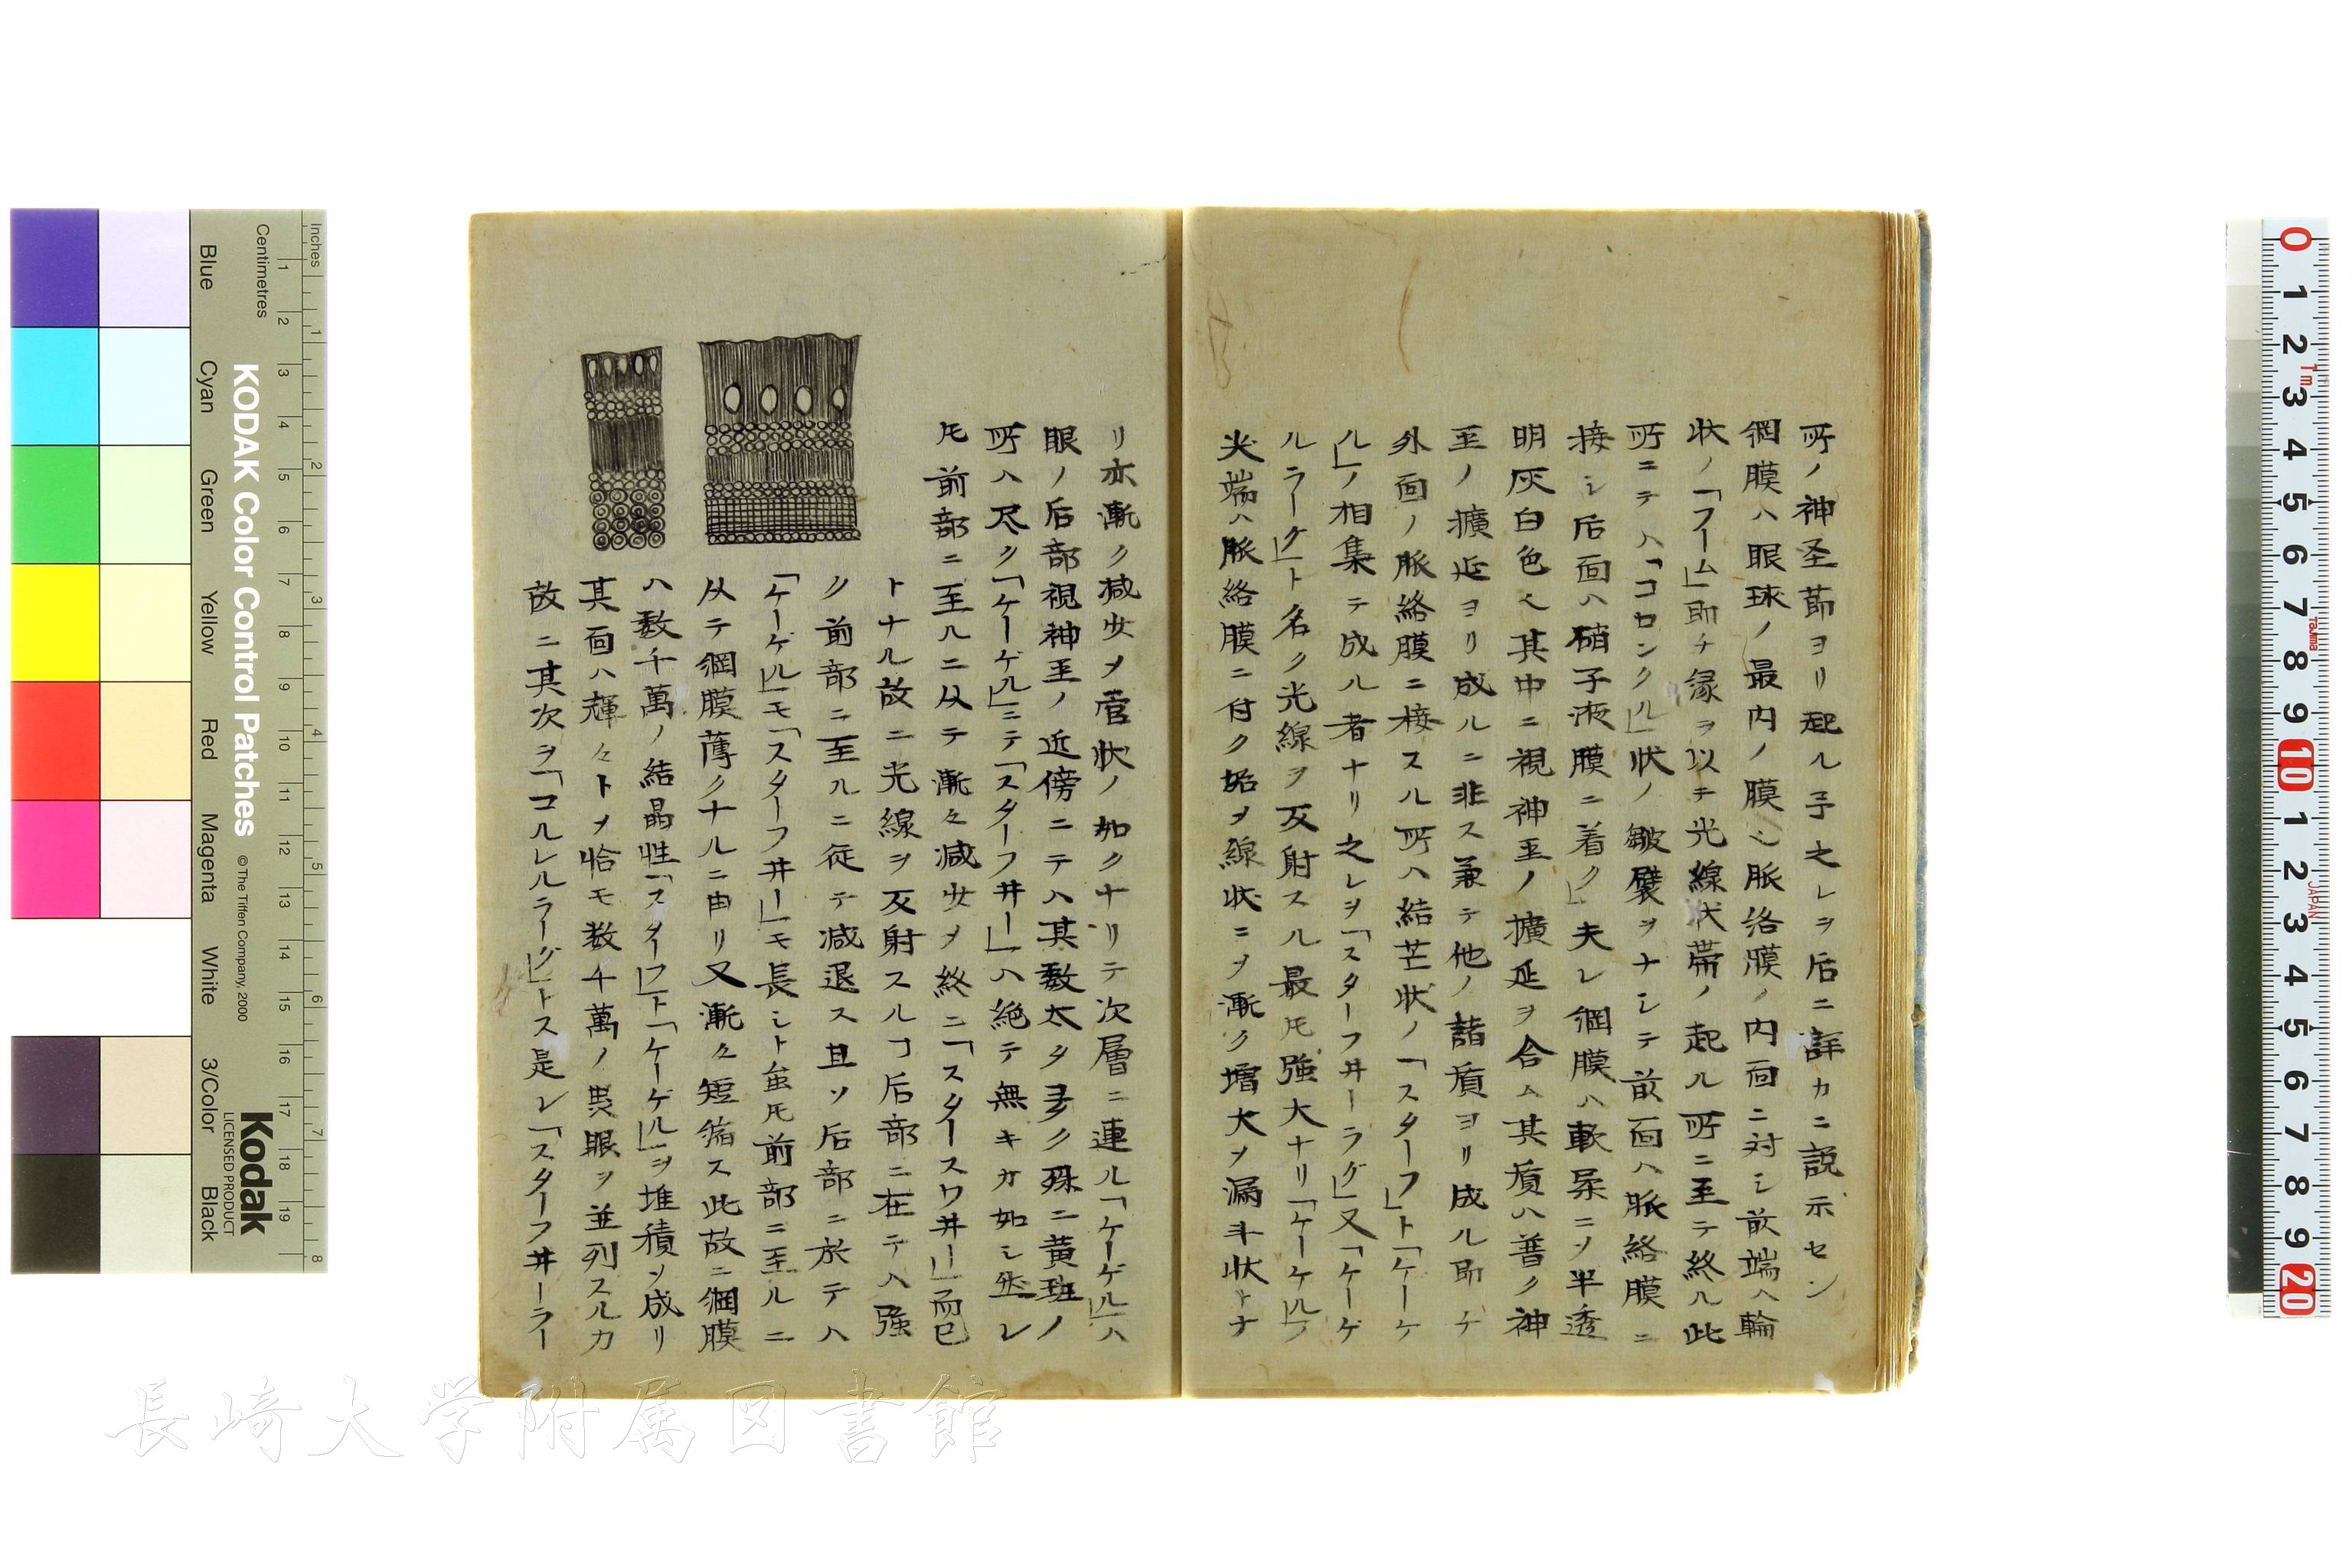 所ノ神圣節ヨリ起ル予之レヲ后ニ詳カニ説示セン
網膜ハ眼球ノ最内ノ膜ヘ脈洛膜ノ内面ニ対シ前端ハ輪
状ノ「フーム」即チ縁ヲ以テ光線状帶ノ起ル所ニ至テ終ル此
所ニテハ「コロンクル」状ノ皺襞ヲナシテ前面ハ脈絡膜ニ
接シ后面ハ硝子液膜ニ着ク」夫レ網膜ハ軟柔ニヲ半透
明灰白色ヘ其中ニ視神圣ノ擴延ヲ含ム其質ハ普ク神
圣ノ擴延ヨリ成ルニ非ス兼テ他ノ諸質ヨリ成ル即チ
外面ノ脈絡膜ニ接スル所ハ結芒状ノ「スターフ」ト「ケーケ
ル」ノ相集テ成ル者ナリ之レヲ「スターフ井ーラグ」又「ケーゲ
ルラーグ」ト名ク光線ヲ反射スル最モ強大ナリ「ケーケル」ノ
尖端ハ脈絡膜ニ付ク始ヲ線状ニヲ漸ク増大ヲ漏斗状トナ
リ亦漸ク減少ヲ管状ノ如クナリテ次層ニ連ル「ケーゲル」ハ
眼ノ后部視神圣ノ近傍ニテハ其数太タ多ク殊ニ黄斑ノ
所ハ尽ク「ケーゲル」ニテ「スターフ井ー」ハ絶テ無キカ如シ然レ
𪜈前部ニ至ルニ从テ漸々減少ヲ終ニ「スタースワ井ー」而已
トナル故ニ光線ヲ反射スルヿ后部ニ在テハ強
ク前部ニ至ルニ従テ減退ス且ソ后部ニ於テハ
「ケーゲル」モ「スターフ井ー」モ長シト虽𪜈前部ニ至ルニ
从テ網膜薄クナルニ由リ又漸々短縮ス此故ニ網膜
ハ数千萬ノ結晶性「スターフ」ト「ケーゲル」ヲ堆積ソ成リ
其面ハ輝々トヲ恰モ数千萬ノ眼ヲ並列スルカ
故ニ其次ヲ「コルレルラーグ」トス是レ「スターフ井ーラー
Inches
Centimetres
KODAK Color Control Patches
© The Tiffen Company, 2000
Kodak
LICENSED PRODUCT
Blue
Cyan
Green
Yellow
Red
Magenta
White
3/Color
Black
1 2 3 4 5 6 7 8
1 2 3 4 5 6 7 8 9 10 11 12 13 14 15 16 17 18 19
0 1 2 3 4 5 6 7 8 9 10 1 2 3 4 5 6 7 8 9 20
1m
Tajima
JAPAN
長崎大学附属図書館